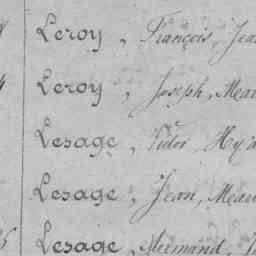 Leroy, François, Jea
Leroy, Joseph, Meau
Lesage, Victor, Hya
Lesage, Jean, Meau
Lesage, Armand,